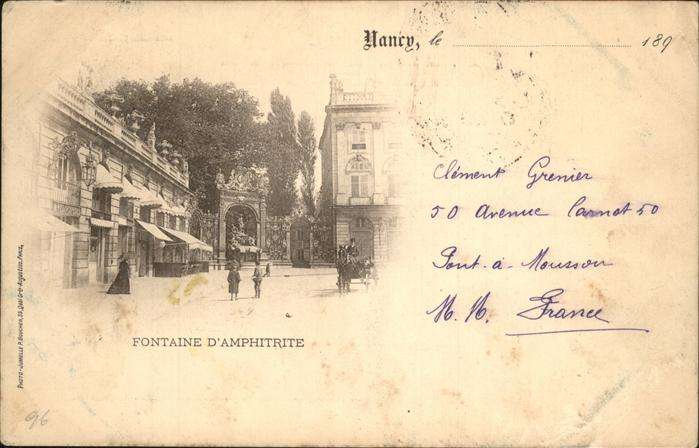 Nancy, le 189
Clément Grenier
50 Avenue Carnot 50
Pont-à-Mousson
M. M. France
FONTAINE D'AMPHITRITE
96